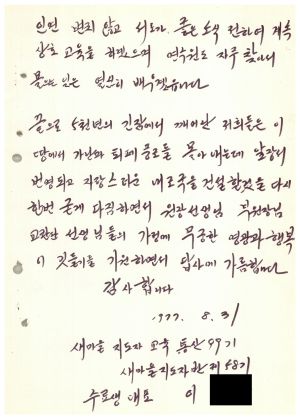 인연 변치 않고 서로가 좋은 소식 전하여 계속
상호 교육을 하겠으며 연수원도 자주 찾아서
모르는 넘은 열심히 배우겠읍니다
끝으로 5천년의 긴잠에서 깨어난 저희들은 이
땅에서 가난과 퇴폐 풍조를 몰아내는데 앞장서
번영되고 자랑스러운 내조국을 건설할것을 다시
한번 굳게 다짐하면서 원장선생님 부원장님
교관님 선생님들의 가정에 무궁한 영광과 행복
이 깃들기를 기원하면서 답사에 가름합니다
감사합니다
1977. 8. 31
새마을 지도자 교육 통산 99기
새마을지도자반 제 58기
수료생 대표 이